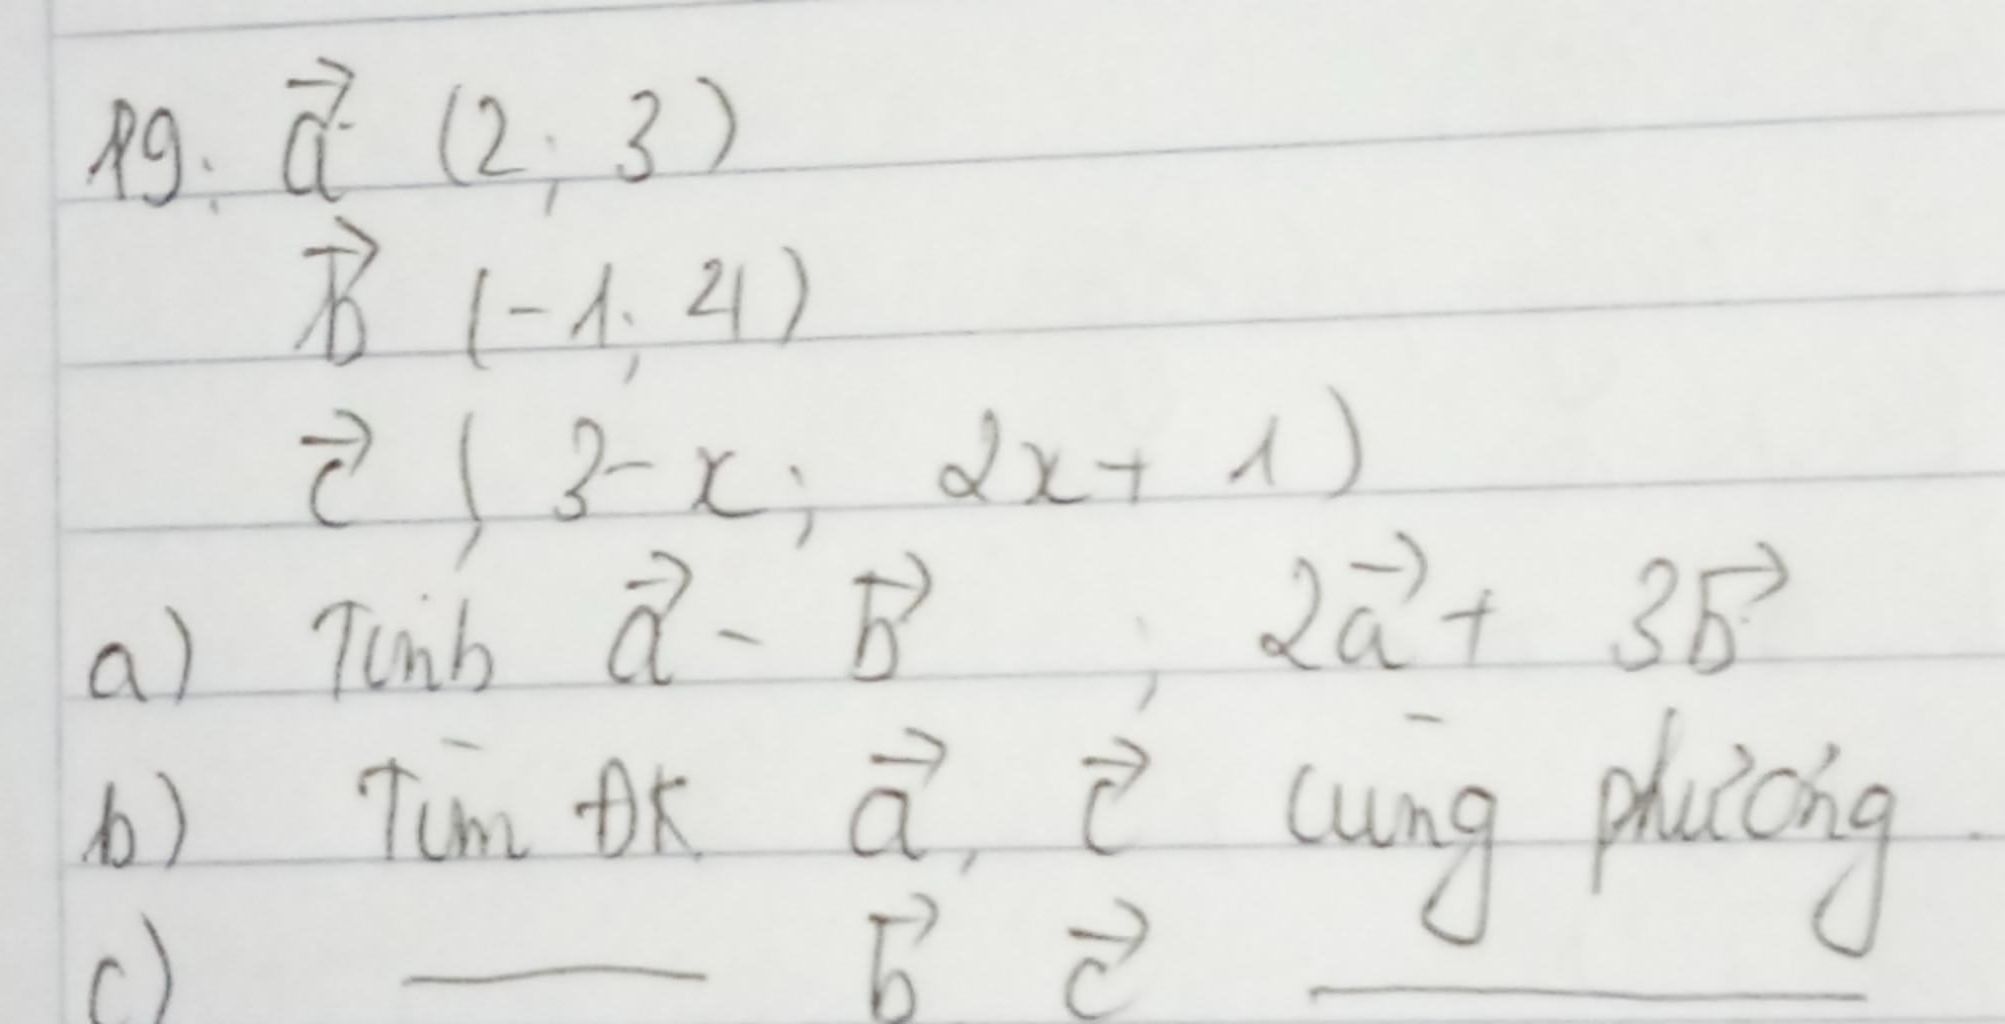 19. a⃗ (2; 3)
b⃗ (-1; 4)
c⃗ (3-x; 2x+1)
a) Tính a⃗ - b⃗ ; 2a⃗ + 3b⃗
b) Tìm ĐK a⃗, c⃗ cùng phương.
c) —— b⃗ c⃗ ——